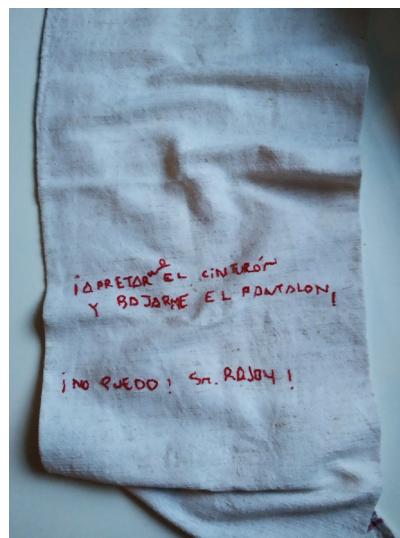 ¡APRETARme EL CINTURÓN
Y BAJARME EL PANTALON!
¡NO PUEDO! Sr. RAJOY!